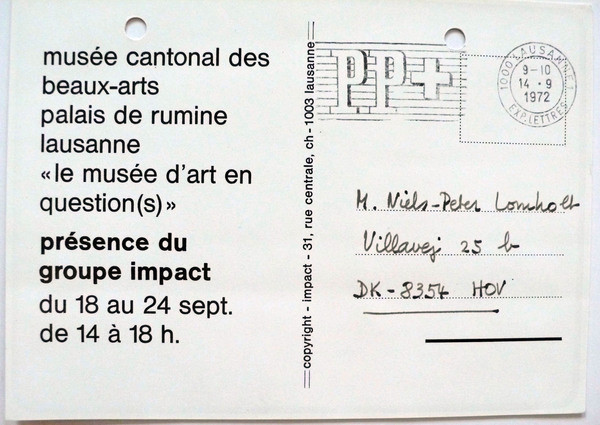 musée cantonal des
beaux-arts
palais de rumine
lausanne
«le musée d'art en
question(s)»
présence du
groupe impact
du 18 au 24 sept.
de 14 à 18 h.
copyright - impact - 31, rue centrale, ch - 1003 lausanne
PP+
1000 LAUSANNE 1
9-10
14.9
1972
EXP.LETTRES
M. Niels-Peter Lomholt
Villavej 25 b
DK-8354 HOV